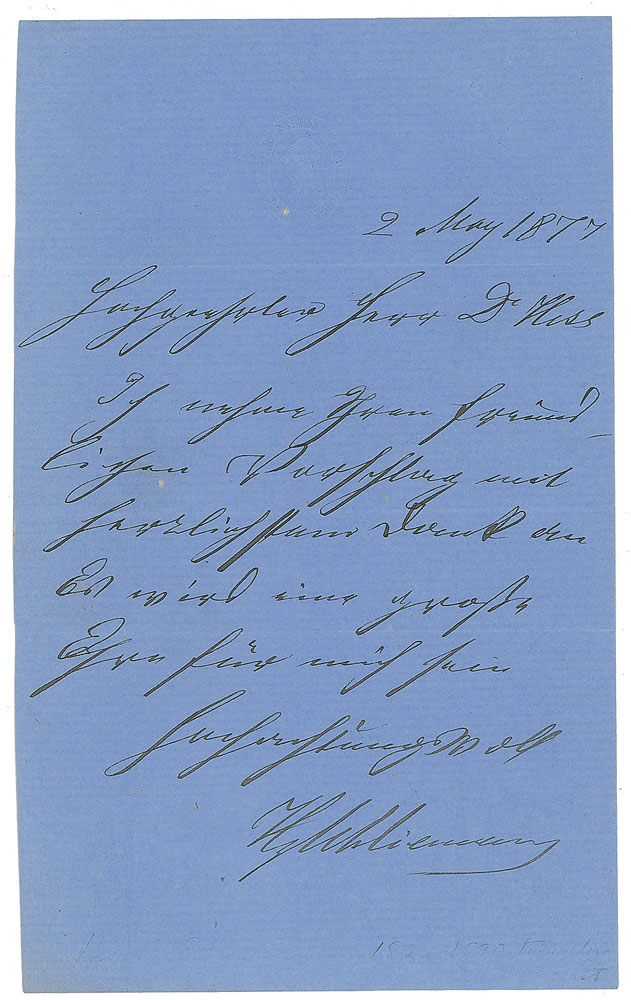 2 May 1877
Hochgeehrter Herr Dr Hess
Ich nehme Ihren freund-
lichen Vorschlag mit
herzlichstem Dank an
Es wird eine große
Ehre für mich sein
hochachtungsvoll
HySchliemann